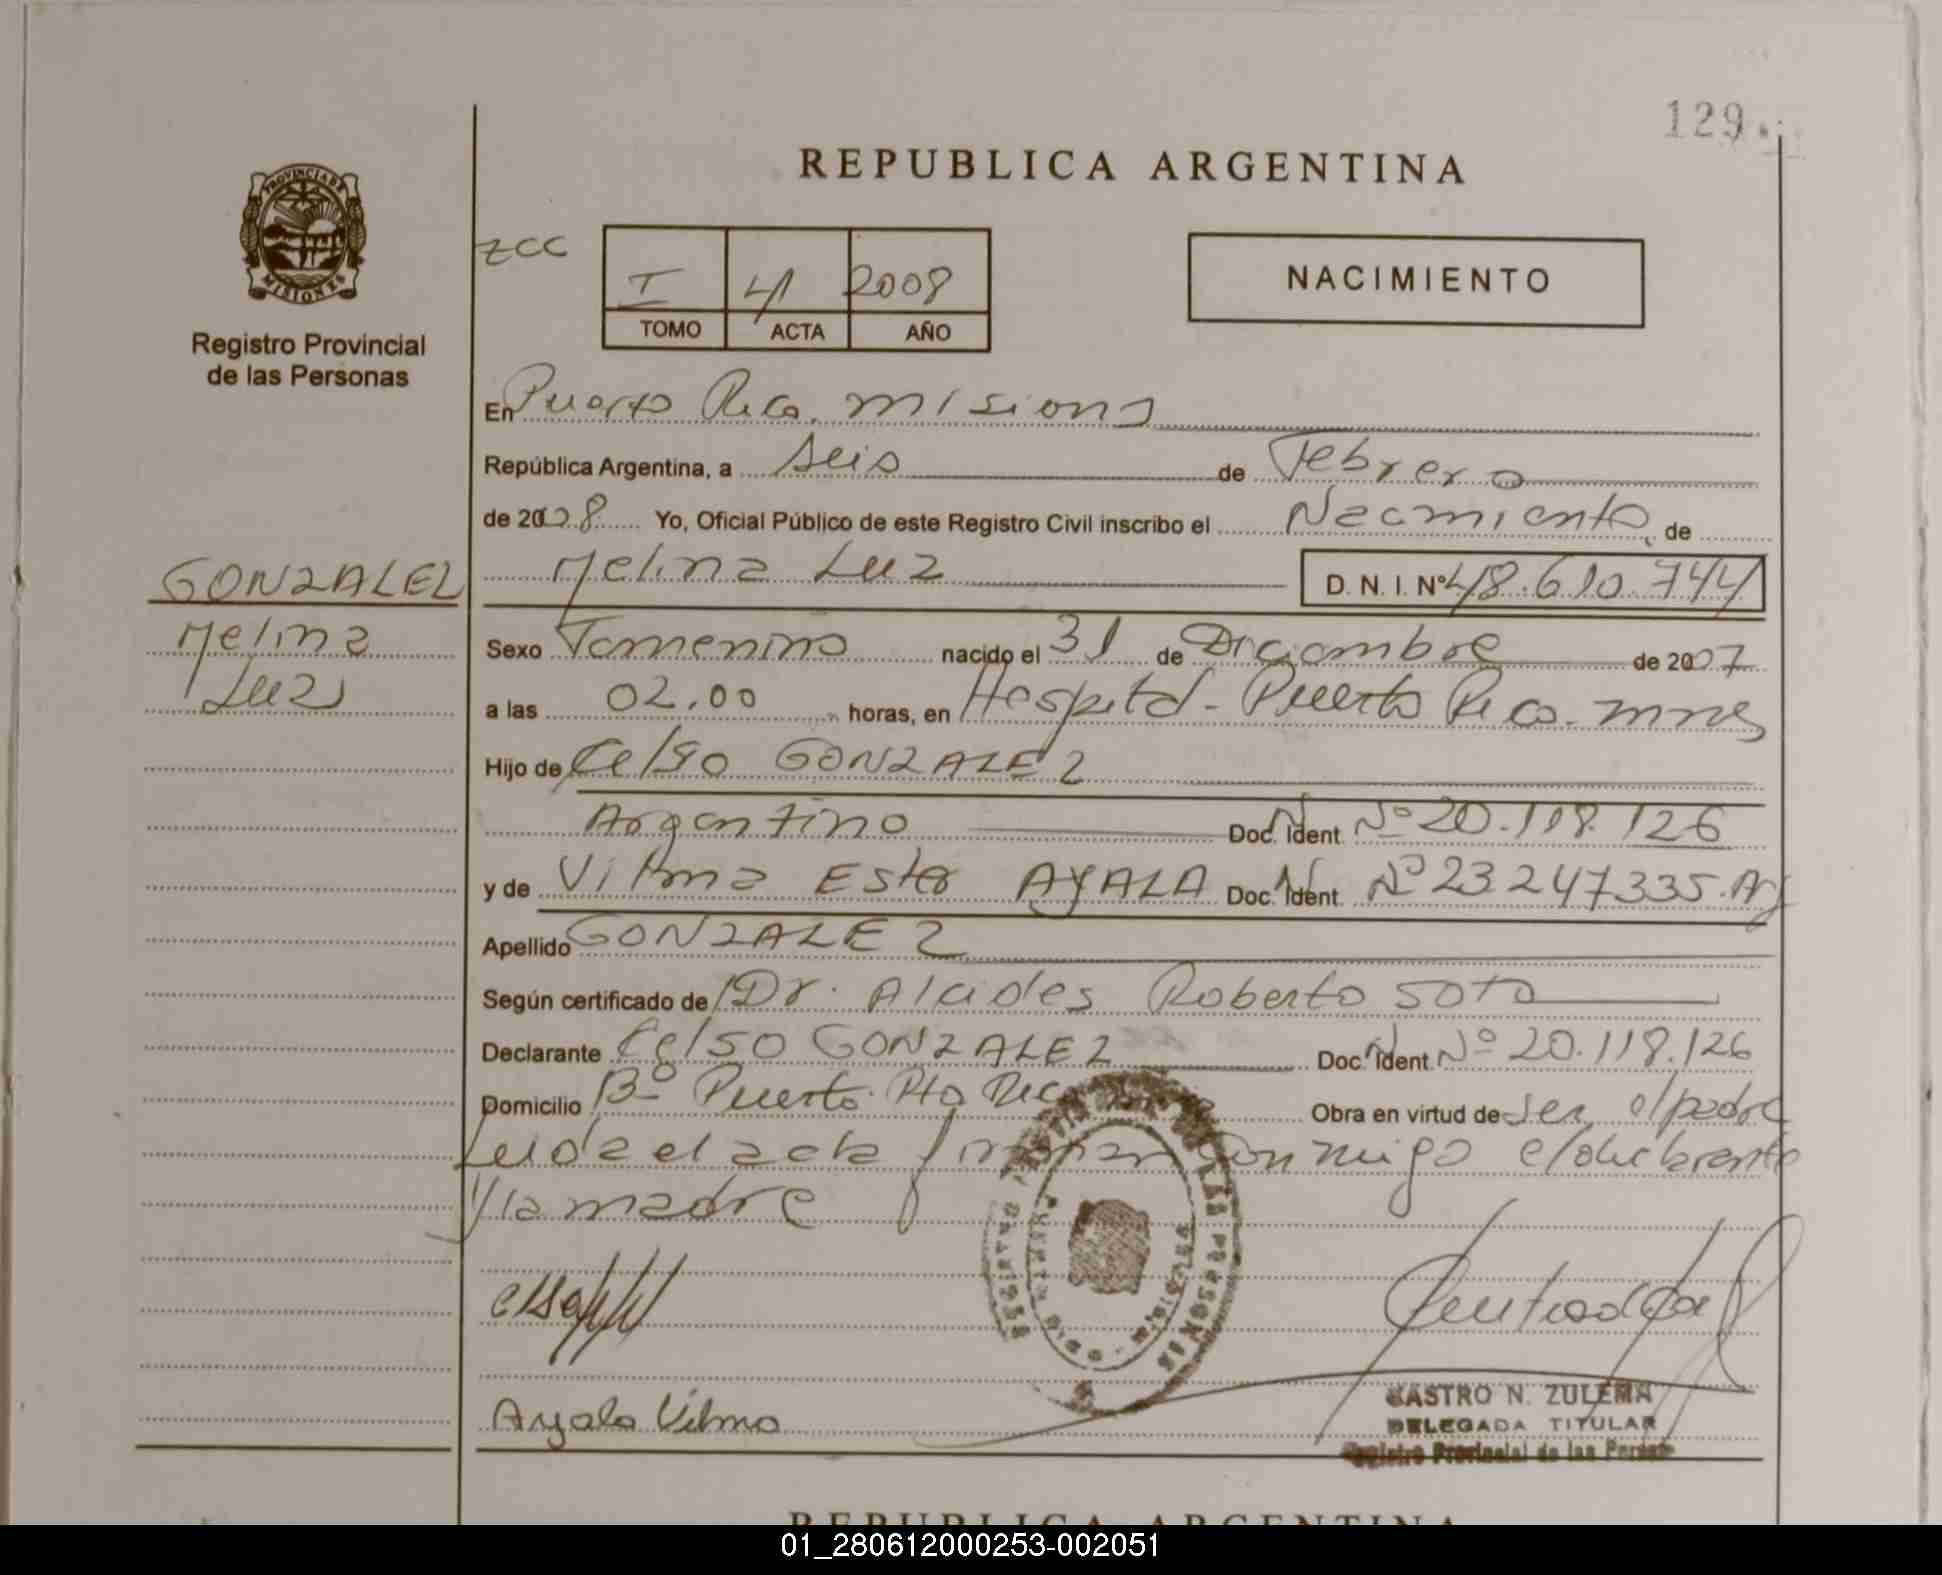 129
REPUBLICA ARGENTINA
PROVINCIA DE
MISIONES
Registro Provincial
de las Personas
ZCC
I 4 2008
TOMO ACTA AÑO
NACIMIENTO
En Puerto Rico. Misiones
República Argentina, a seis de Febrero
de 2008 Yo, Oficial Público de este Registro Civil inscribo el Nacimiento de
Melina Luz D. N. I. Nº 48.610.744
GONZALEZ
Melina
Luz
Sexo Femenino nacido el 31 de Diciembre de 2007
a las 02.00 horas, en Hospital - Puerto Rico. Mnes
Hijo de Celso GONZALEZ
Argentino Doc. Ident. Nº 20.118.126
y de Vilma Ester AYALA Doc. Ident. Nº 23.247.335. Arg
Apellido GONZALEZ
Según certificado de Dr. Alcides Roberto SOTO
Declarante Celso GONZALEZ Doc. Ident. Nº 20.118.126
Domicilio Bº Puerto. Pto Rico Obra en virtud de ser el padre
Leida el acta firman conmigo el declarante
y la madre
Ayala Vilma
CASTRO N. ZULEMA
DELEGADA TITULAR
Registro Provincial de las Personas
REPUBLICA ARGENTINA
01_280612000253-002051